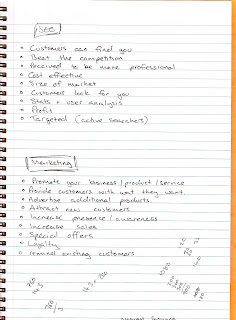 SEO
Customers can find you
Beat the competition
Perceived to be more professional
Cost effective
Size of market
Customers look for you
Stats + user analysis
Profit
Targeted (active searchers)
Marketing
Promote your business / product / service
Provide customers with what they want
Advertise additional products
Attract new customers
Increase presence / awareness
Increase sales
Special offers
Loyalty
remind existing customers